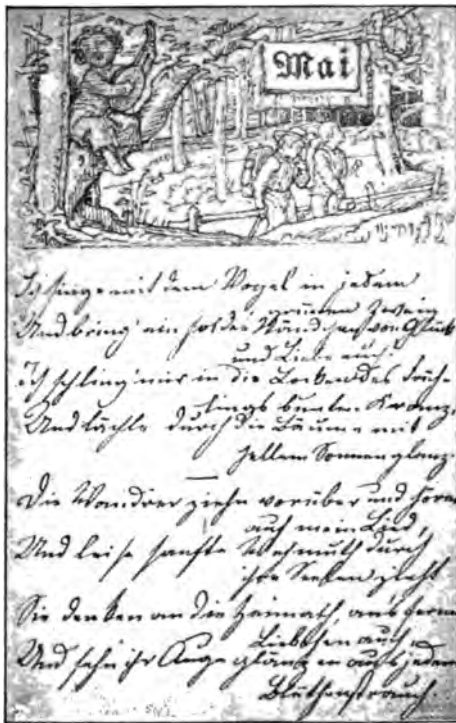 Mai
Ich singe mit dem Vogel in jedem
grünen Zweig
Und bring' ein holdes Ständchen von Glück
und Liebe euch!
Ich schling' mir in die Locken des Früh-
lings bunten Kranz,
Und lächle durch die Bäume mit
hellem Sonnenglanz.
Die Wandrer ziehn vorüber und hören
auch mein Lied,
Und leise sanfte Wehmuth durch
ihre Seelen zieht
Sie denken an die Heimath, an's ferne
Liebchen auch,
Und sehn ihr Auge glänzen aus jedem
Blüthenstrauch.